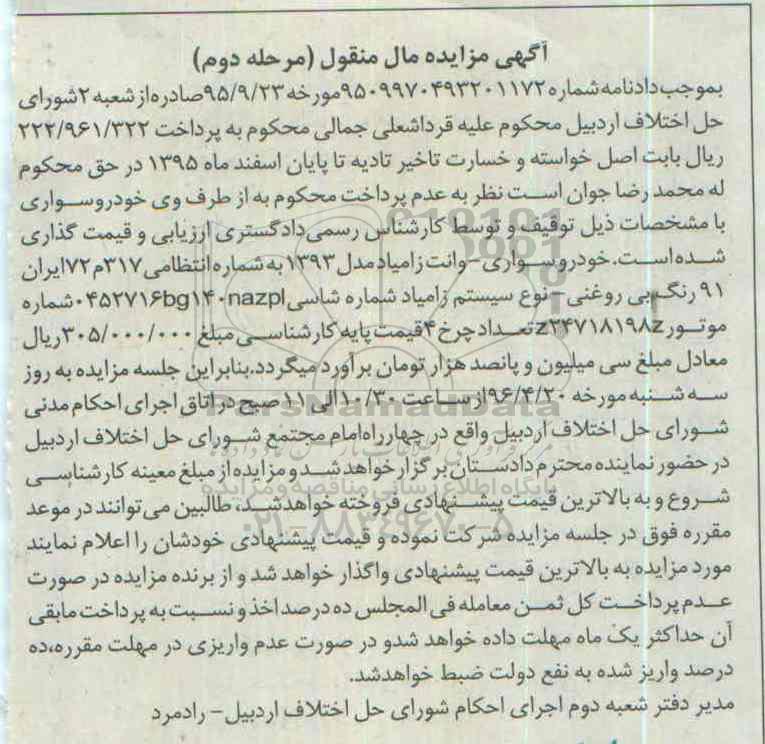 آگهی مزایده مال منقول (مرحله دوم)
بموجب دادنامه شماره ۹۵۰۹۹۷۰۴۹۳۲۰۱۱۷۲ مورخه ۹۵/۹/۲۳ صادره از شعبه ۲ شورای
حل اختلاف اردبیل محکوم علیه قرداشعلی جمالی محکوم به پرداخت ۲۲۲/۹۶۱/۳۲۲
ریال بابت اصل خواسته و خسارت تاخیر تادیه تا پایان اسفند ماه ۱۳۹۵ در حق محکوم
له محمد رضا جوان است نظر به عدم پرداخت محکوم به از طرف وی خودروسواری
با مشخصات ذیل توقیف و توسط کارشناس رسمی دادگستری ارزیابی و قیمت گذاری
شده است. خودروسواری - وانت زامیاد مدل ۱۳۹۳ به شماره انتظامی ۳۱۷م۷۲ ایران
۹۱ رنگ بی روغنی - نوع سیستم زامیاد شماره شاسی nazpl۱۴۰bg۰۴۵۲۷۱۶ شماره
موتور z۲۴۷۱۸۱۹۸z تعداد چرخ ۴ قیمت پایه کارشناسی مبلغ ۳۰۵/۰۰۰/۰۰۰ ریال
معادل مبلغ سی میلیون و پانصد هزار تومان برآورد میگردد. بنابراین جلسه مزایده به روز
سه شنبه مورخه ۹۶/۴/۲۰ از ساعت ۱۰/۳۰ الی ۱۱ صبح در اتاق اجرای احکام مدنی
شورای حل اختلاف اردبیل واقع در چهارراه امام مجتمع شورای حل اختلاف اردبیل
در حضور نماینده محترم دادستان برگزار خواهد شد و مزایده از مبلغ معینه کارشناسی
شروع و به بالاترین قیمت پیشنهادی فروخته خواهد شد. طالبین می توانند در موعد
مقرره فوق در جلسه مزایده شرکت نموده و قیمت پیشنهادی خودشان را اعلام نمایند
مورد مزایده به بالاترین قیمت پیشنهادی واگذار خواهد شد و از برنده مزایده در صورت
عدم پرداخت کل ثمن معامله فی المجلس ده درصد اخذ و نسبت به پرداخت مابقی
آن حداکثر یک ماه مهلت داده خواهد شد و در صورت عدم واریزی در مهلت مقرره، ده
درصد واریز شده به نفع دولت ضبط خواهد شد.
مدیر دفتر شعبه دوم اجرای احکام شورای حل اختلاف اردبیل - رادمرد
ParsNamadData
پایگاه اطلاع رسانی مناقصه و مزایده
۰۲۱-۸۸۳۴۹۶۷۰-۵